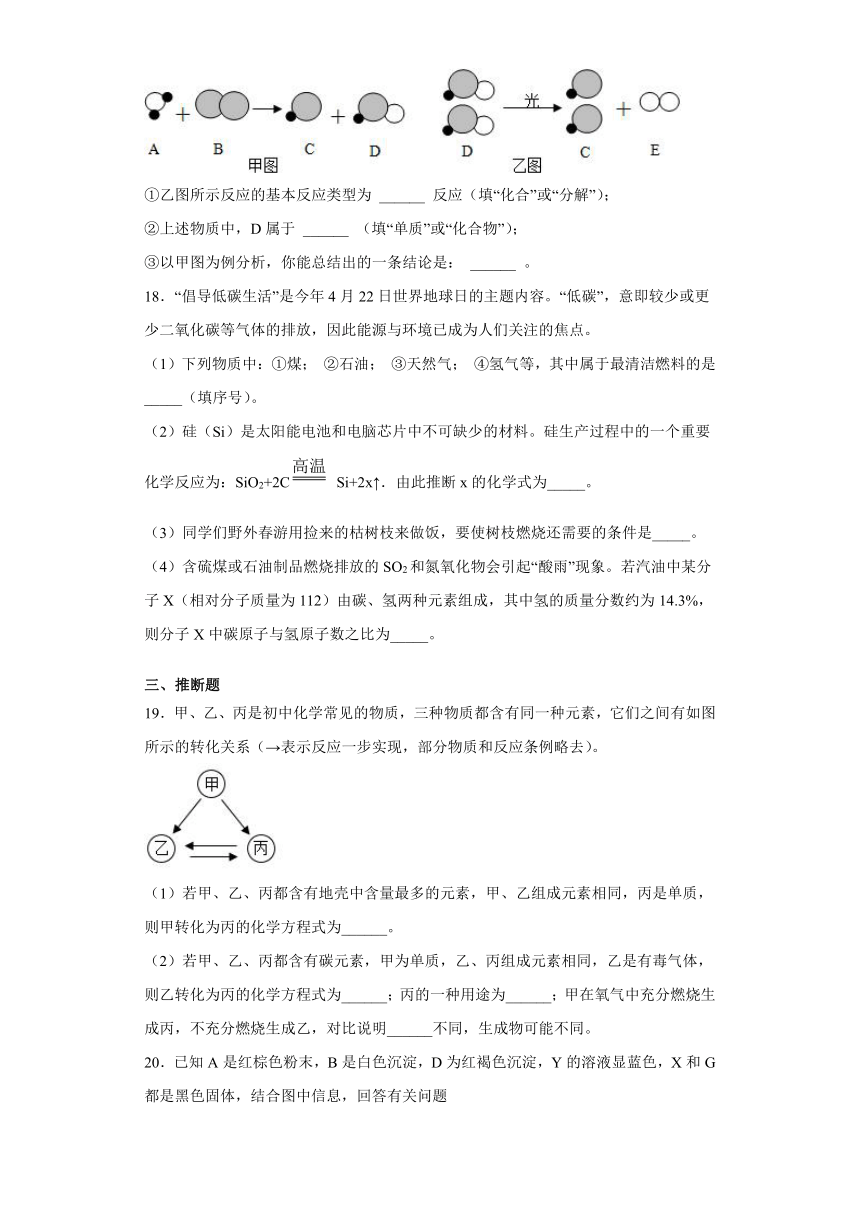 光
A B C D D C E
甲图 乙图
①乙图所示反应的基本反应类型为 ______ 反应（填“化合”或“分解”）；
②上述物质中，D 属于 ______ （填“单质”或“化合物”）；
③以甲图为例分析，你能总结出的一条结论是： ______ 。
18．“倡导低碳生活”是今年 4 月 22 日世界地球日的主题内容。“低碳”，意即较少或更
少二氧化碳等气体的排放，因此能源与环境已成为人们关注的焦点。
（1）下列物质中：①煤； ②石油； ③天然气； ④氢气等，其中属于最清洁燃料的是
_____（填序号）。
（2）硅（Si）是太阳能电池和电脑芯片中不可缺少的材料。硅生产过程中的一个重要
化学反应为：SiO₂+2C 高温 Si+2x↑．由此推断 x 的化学式为_____。
（3）同学们野外春游用捡来的枯树枝来做饭，要使树枝燃烧还需要的条件是_____。
（4）含硫煤或石油制品燃烧排放的 SO₂ 和氮氧化物会引起“酸雨”现象。若汽油中某分
子 X（相对分子质量为 112）由碳、氢两种元素组成，其中氢的质量分数约为 14.3%，
则分子 X 中碳原子与氢原子数之比为_____。
三、推断题
19．甲、乙、丙是初中化学常见的物质，三种物质都含有同一种元素，它们之间有如图
所示的转化关系（→表示反应一步实现，部分物质和反应条例略去）。
甲
乙 丙
（1）若甲、乙、丙都含有地壳中含量最多的元素，甲、乙组成元素相同，丙是单质，
则甲转化为丙的化学方程式为______。
（2）若甲、乙、丙都含有碳元素，甲为单质，乙、丙组成元素相同，乙是有毒气体，
则乙转化为丙的化学方程式为______；丙的一种用途为______；甲在氧气中充分燃烧生
成丙，不充分燃烧生成乙，对比说明______不同，生成物可能不同。
20．已知 A 是红棕色粉末，B 是白色沉淀，D 为红褐色沉淀，Y 的溶液显蓝色，X 和 G
都是黑色固体，结合图中信息，回答有关问题